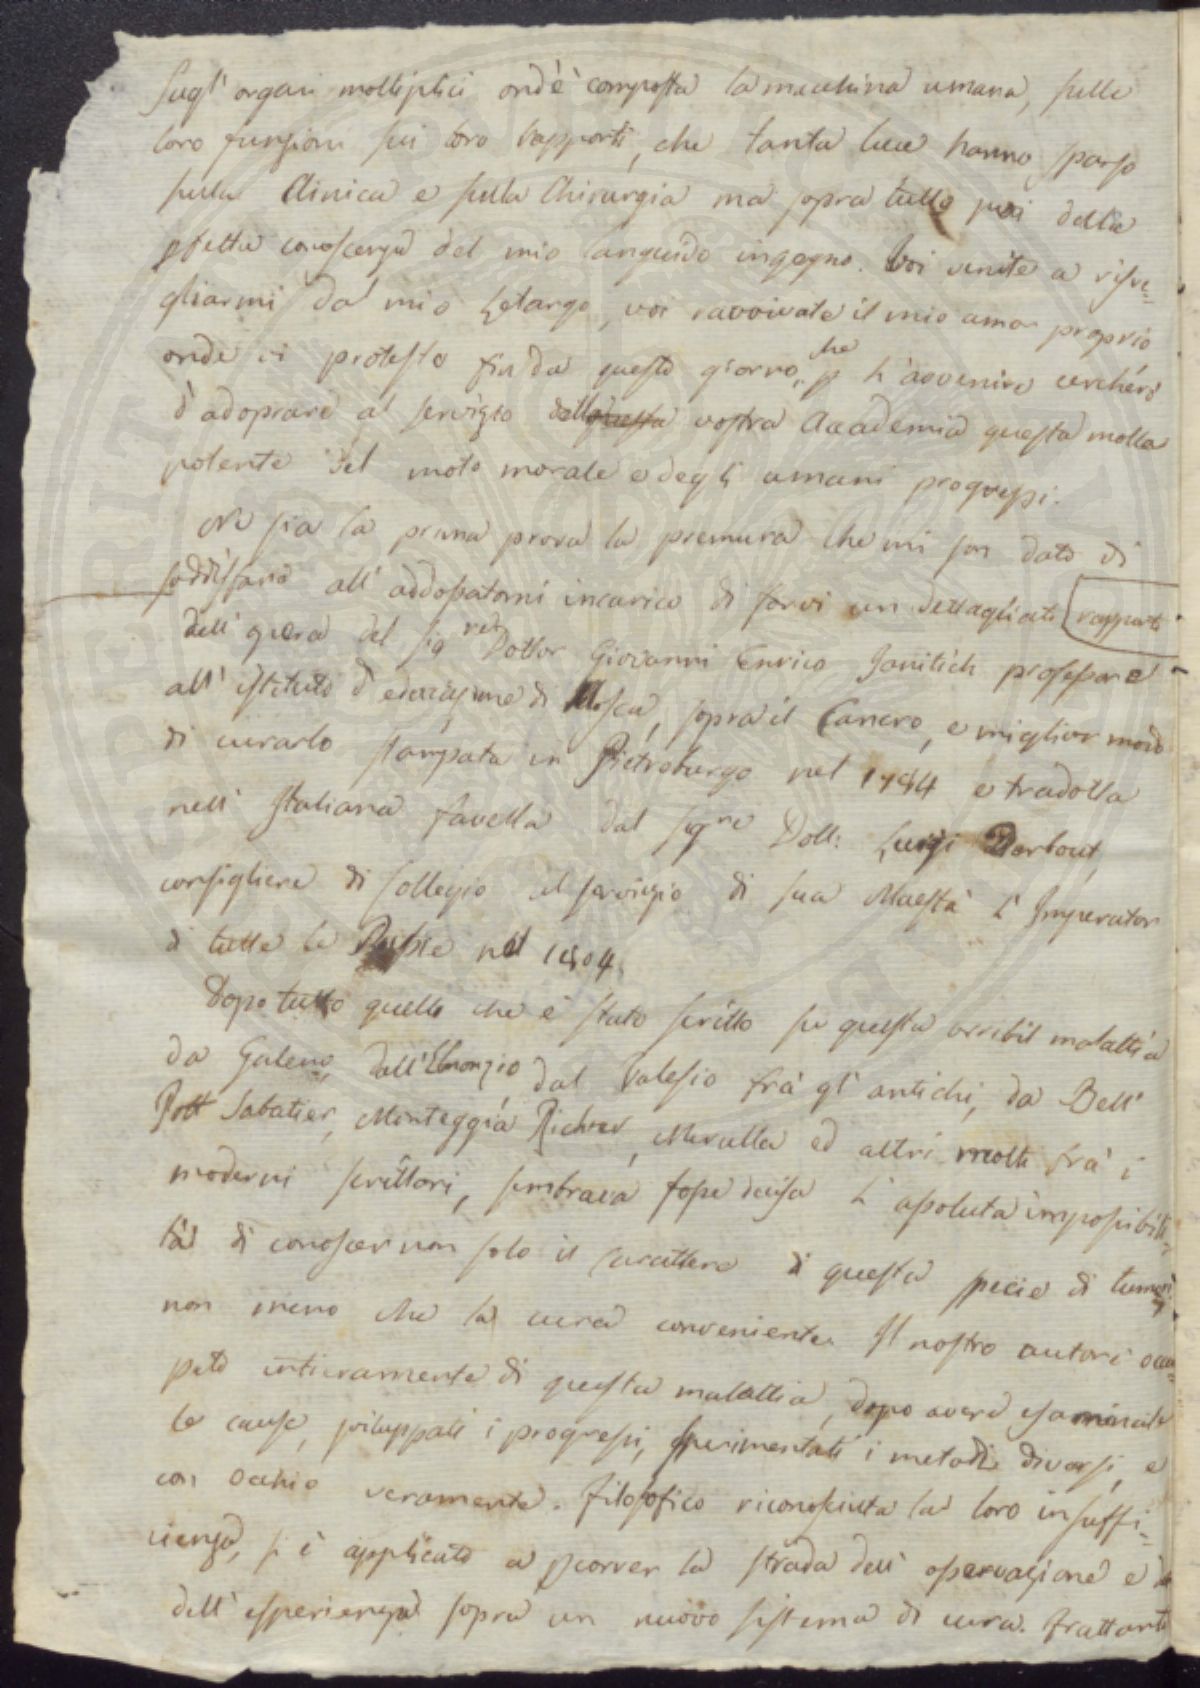 sugl' organi molteplici ond'è composta la macchina umana, sulle
loro funzioni sui loro rapporti, che tanta luce hanno sparso
sulla Clinica e sulla Chirurgia ma sopra tutto poi della
pfetta conoscenza del mio languido ingegno. Voi venite a risve=
gliarmi dal mio Letargo, voi ravvivate il mio amor proprio
onde vi protesto fin da questo giorno, che p l'avvenire cercherò
d'adoprare al servizio della questa vostra Accademia questa molla
potente del moto morale e degli umani progressi.
Ne sia la prima prova la premura che mi son dato di
soddisfare all' addossatomi incarico di farvi un dettagliato rapporto
dell' opera del Sigre Dottor Giovanni Enrico Janitich professore
all' istituto d'educazione di Mosca, sopra il Cancro, e miglior modo
di curarlo stampata in Pietroburgo nel 1784 e tradotta
nell' Italiana favella dal Sigre Dott: Luigi Darbout,
consigliere di Collegio al servizio di sua Maestà l'Imperator
di tutte le Russie nel 1804.
Dopo tutto quello che è stato scritto su questa orribil malattia
da Galeno, dall' dal Valesio frà gl' antichi, da Bell'
Pott Sabatier, Monteggia Richter, ed altri molti frà i
moderni scrittori, sembrava fosse decisa l'assoluta impossibili=
tà di conoscer non solo il carattere di questa specie di tumori
non meno che la cura conveniente. Il nostro autore occu=
pato intieramente di questa malattia, dopo avere esaminate
le cause, sviluppati i progressi, sperimentati i metodi diversi, e
con occhio veramente filosofico riconosciuta la loro insuffi=
cienza, si è applicato a scorrer la strada dell' osservazione e
dell' esperienza sopra un nuovo sistema di cura. Frattanto